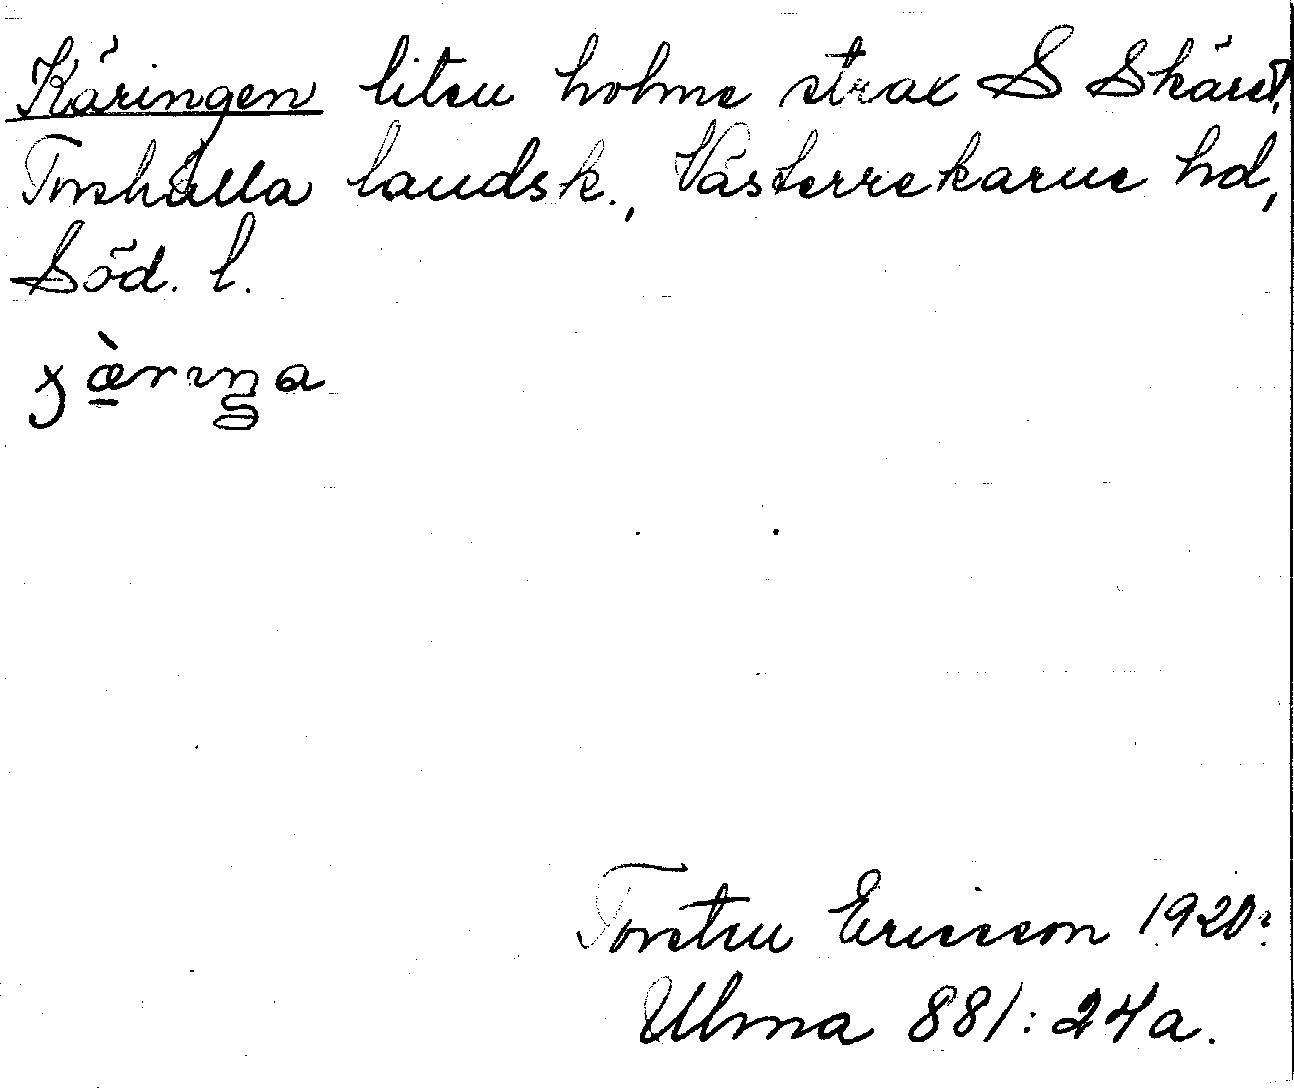 Käringen liten holme strax S Skäret,
Torshälla landsk., Västerrekarne hd,
Söd. l.
Torsten Ericsson 1920?
Ulma 881:24a.